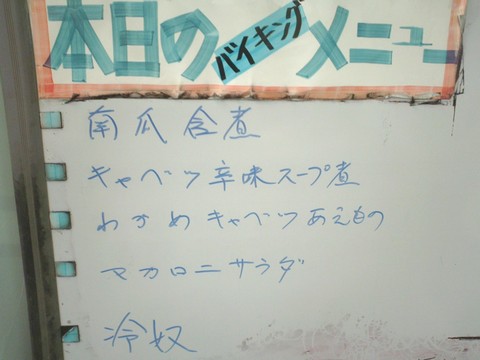 本日のバイキングメニュー
南瓜含煮
キャベツ辛味スープ煮
わかめキャベツあえもの
マカロニサラダ
冷奴